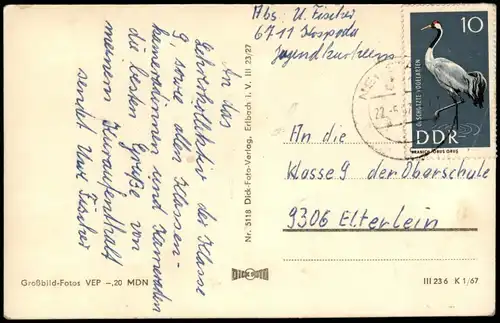 Abs: U. Fischer
6711 Kospoda
Jugendkurheim
10
GESCHÜTZTE VOGELARTEN
DDR
KRANICH/GRUS GRUS
22.-5
An das
Lehrerkollektiv der Klasse
9, sowie allen Klassen-
kameradinnen und Kameraden
die besten Grüße von
meinem Kuraufenthalt
sendet Uwe Fischer
An die
Klasse 9 der Oberschule
9306 Elterlein
Nr. 5118 Dick-Foto-Verlag, Erlbach i. V. III 23/27
DICK FOTO
Großbild-Fotos VEP –,20 MDN
III 23 6 K 1/67